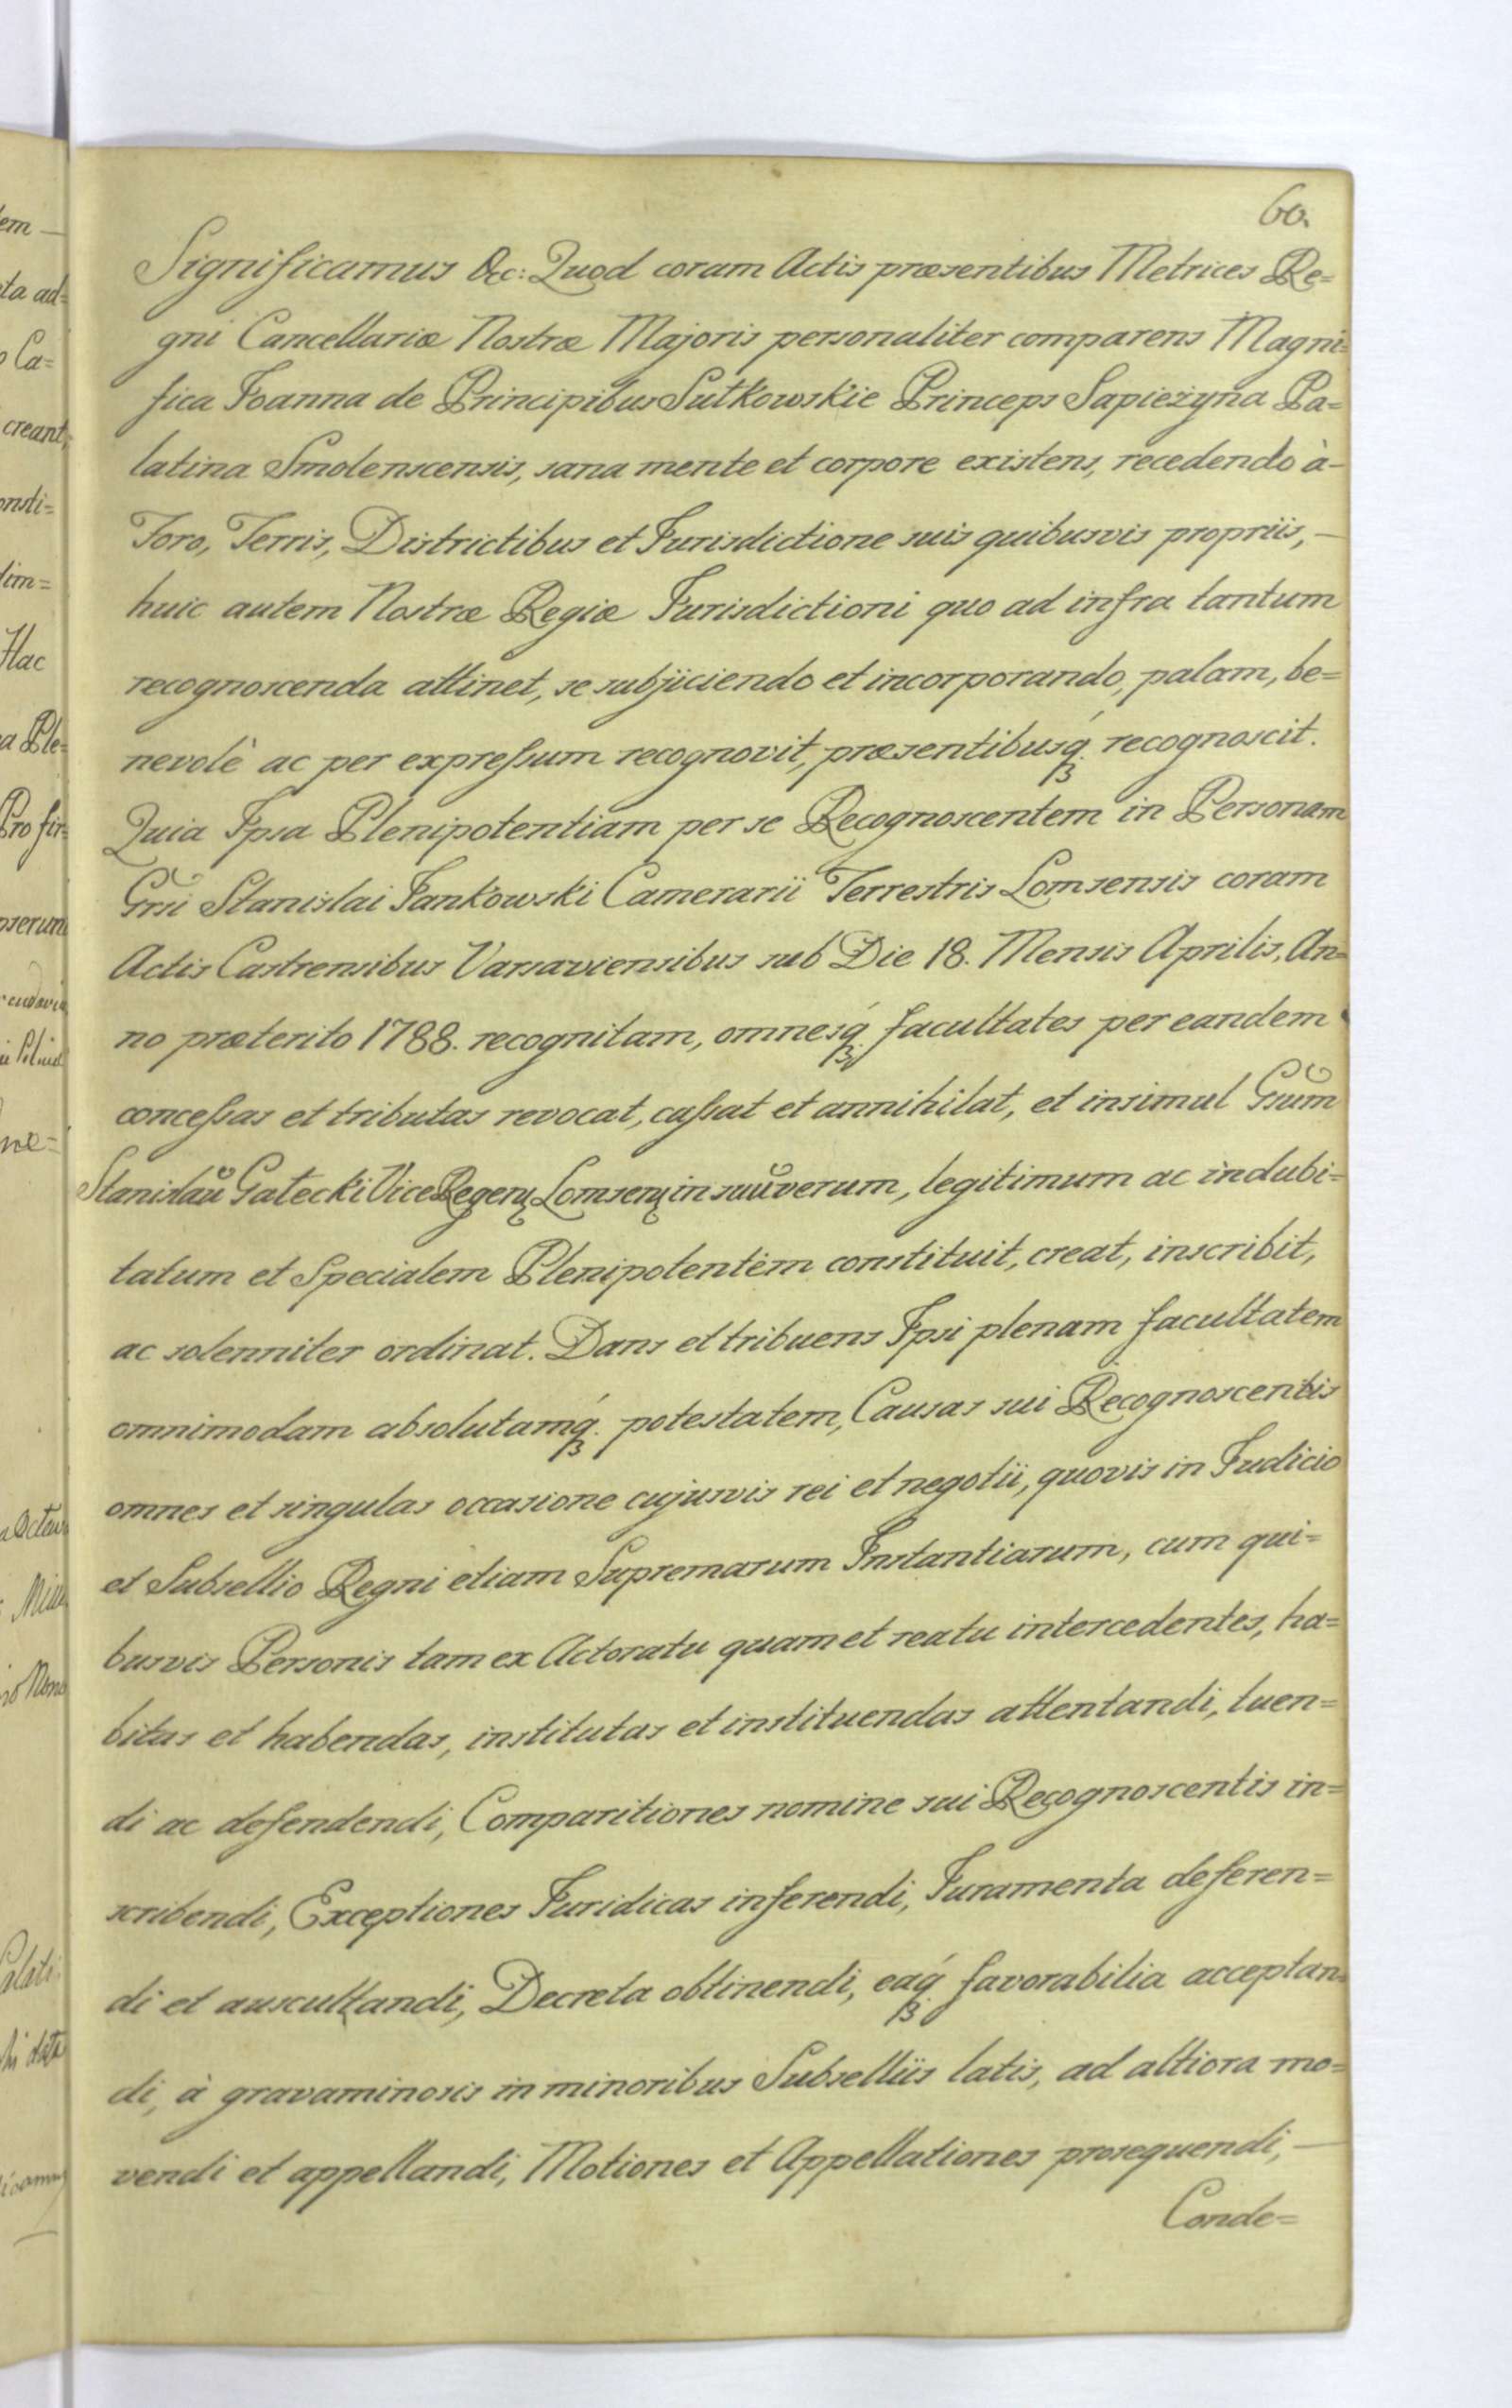 60.
Significamus &c: Quod coram Actis præsentibus Metrices Re=
gni Cancellariæ Nostræ Majoris personaliter comparens Magni=
fica Joanna de Principibus Sułkowskie Princeps Sapieżyna Pa=
latina Smolenscensis, sana mente et corpore existens, recedendo à-
Foro, Terris, Districtibus et Jurisdictione suis quibusvis propriis, —
huic autem Nostræ Regiæ Jurisdictioni quo ad infra tantum
recognoscenda attinet, se subjiciendo et incorporando, palam, be=
nevolè ac per expreſsum recognovit, præsentibusq́ recognoscit.
Quia Ipsa Plenipotentiam per se Recognoscentem in Personam
Grsi Stanislai Jankowski Camerarii Terrestris Lomsensis coram
Actis Castrensibus Varsaviensibus sub Die 18. Mensis Aprilis, An=
no præterito 1788. recognitam, omnesq́ facultates per eandem
conceſsas et tributas revocat, caſsat et annihilat, et insimul Gsum
Stanislaũ Gałecki Vice Regenţ Lomsenţ in suũ verum, legitimum ac indubi=
tatum et Specialem Plenipotentem constituit, creat, inscribit,
ac solenniter ordinat. Dans et tribuens Ipsi plenam facultatem
omnimodam absolutamq́ potestatem, Causas sui Recognoscentis
omnes et singulas occasione cujusvis rei et negotii, quovis in Judicio
et Subsellio Regni etiam Supremarum Instantiarum, cum qui=
busvis Personis tam ex Actoratu quam et reatu intercedentes, ha=
bitas et habendas, institutas et instituendas attentandi, tuen=
di ac defendendi, Comparitiones nomine sui Recognoscentis in=
scribendi, Exceptiones Juridicas inferendi, Juramenta deferen=
di et auscultandi, Decreta obtinendi, eaq́ favorabilia acceptan=
di, à gravaminosis in minoribus Subselliis latis, ad altiora mo=
vendi et appellandi, Motiones et Appellationes prosequendi, —
Conde=